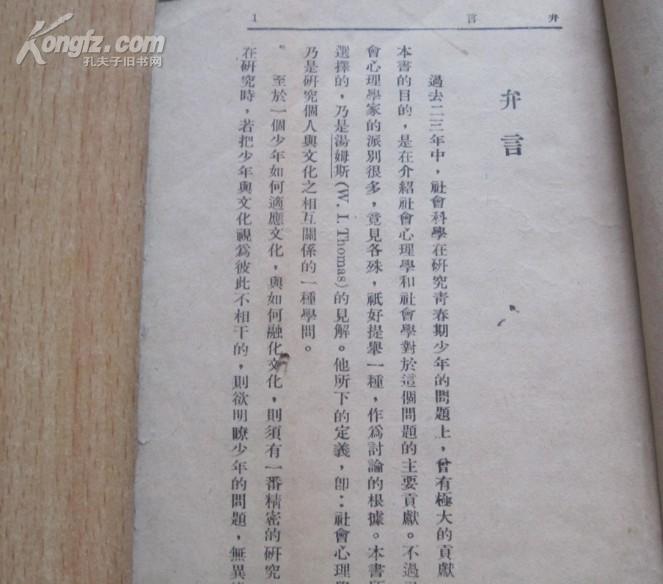 Kongfz.com
孔夫子旧书网
弁言
1
弁言
過去二三年中，社會科學在硏究靑春期少年的問題上，曾有極大的貢獻
本書的目的，是在介紹社會心理學和社會學對於這個問題的主要貢獻。不過
會心理學家的派別很多，竟見各殊，祇好提舉一種，作爲討論的根據。本書所
選擇的，乃是湯姆斯(W. I. Thomas)的見解。他所下的定義，卽：社會心理
乃是硏究個人與文化之相互關係的一種學問。
至於一個少年如何適應文化，與如何融化文化，則須有一番精密的硏究
在硏究時，若把少年與文化視爲彼此不相干的，則欲明瞭少年的問題，無異